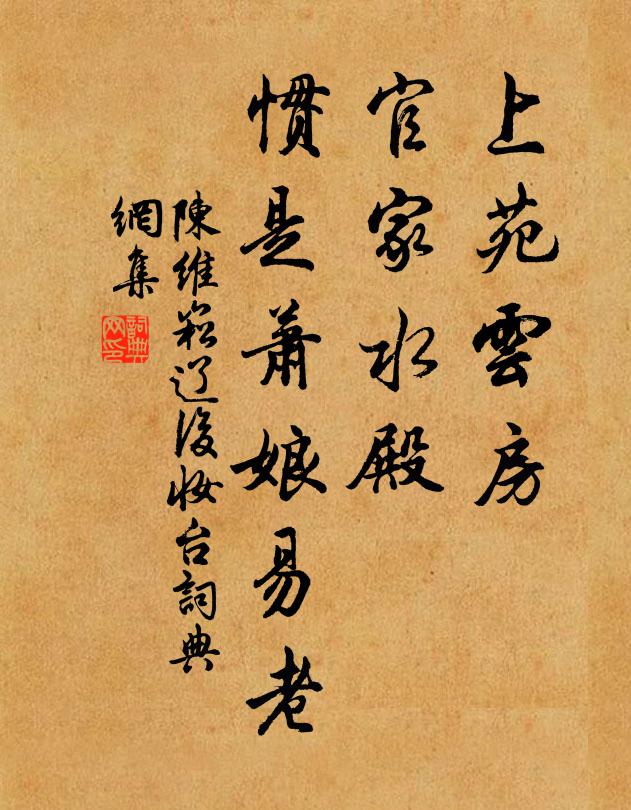 上苑雲房
官家水殿
慣是蕭娘易老
陳維崧辽後妝台詞典
網集
詞典
网印